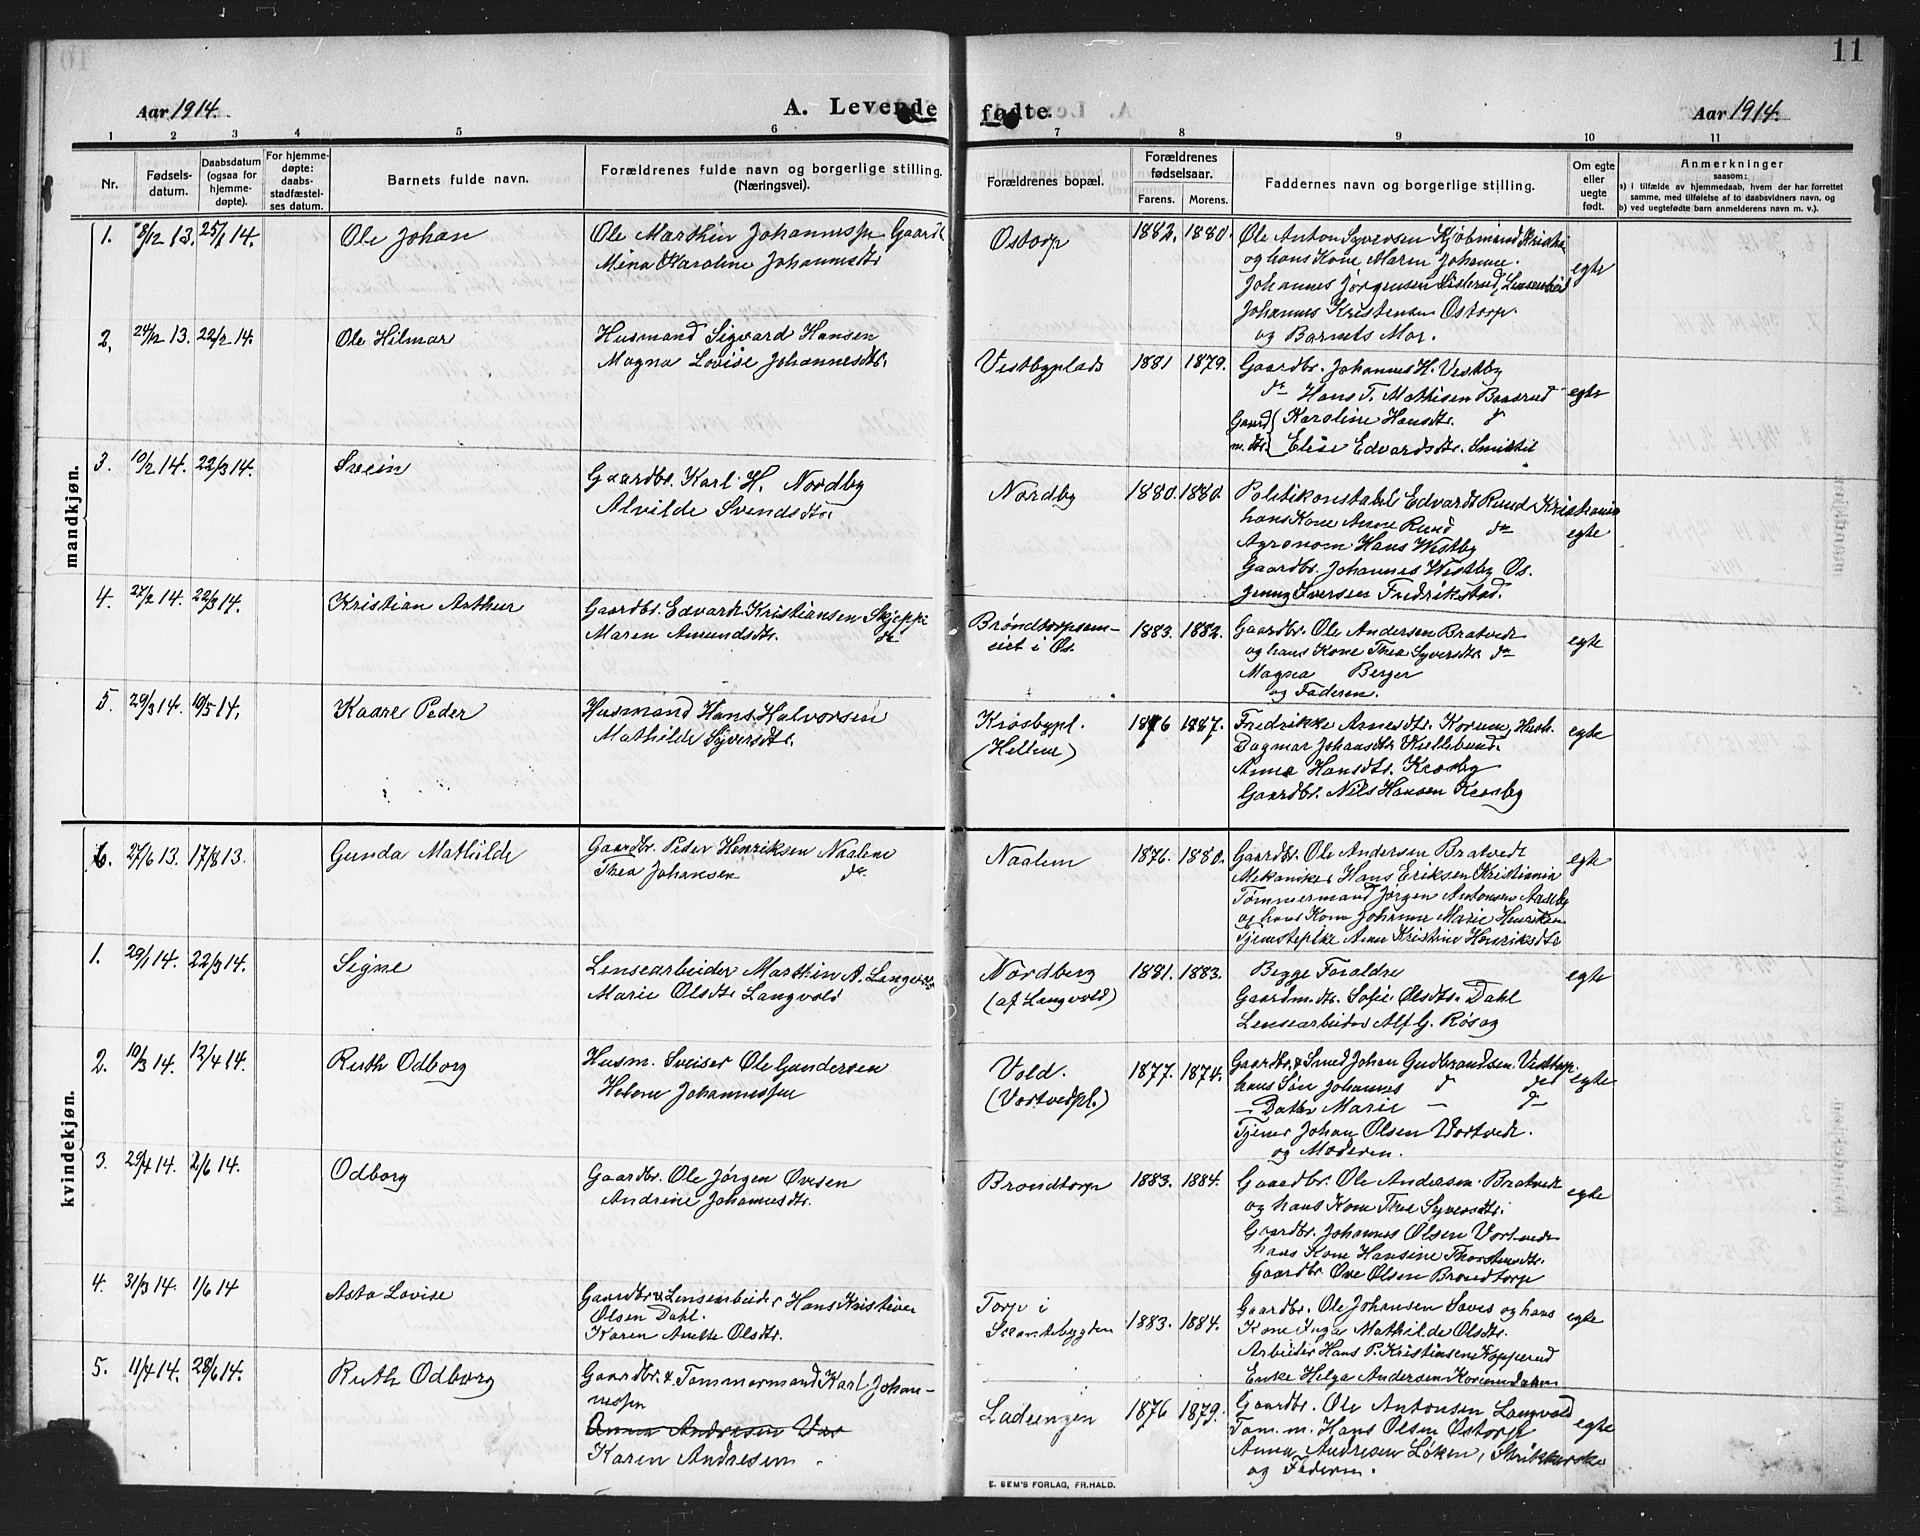 11
Aar 1914.
A. Levende fødte.
Aar 1914.
1 2 3 4 5 6 7 8 9 10 11
Nr.
Fødsels-
datum.
Daabsdatum
(ogsaa for
hjemme-
døpte).
For hjemme-
døpte:
daabs-
stadfæstel-
ses datum.
Barnets fulde navn.
Forældrenes fulde navn og borgerlige stilling.
(Næringsvei).
Forældrenes bopæl.
Forældrenes
fødselsaar.
Farens. Morens.
Faddernes navn og borgerlige stilling.
Om egte
eller
uegte
født.
Anmerkninger
saasom:
a) i tilfælde av hjemmedaab, hvem der har forrettet
samme, med tilføielse af to daabsvidners navn, og
b) ved uegtefødte barn anmelderens navn m. v.).
mandkjøn.
1. 8/12 13. 25/1 14.
Ole Johan
Ole Marthin Johannessen Gaardb
Mina Karoline Johannesdtr
Ostorp
1882. 1880.
Ole Anton Syversen Kjøbmand Kristia
og hans Kone Maren Johanne.
Johannes Jørgensen Listerud, Lensearbeid
Johannes Kristensen Ostorp.
og Barnets Mor.
egte
2. 24/12 13. 22/2 14.
Ole Hilmar
Husmand Sigvard Hansen
Magna Lovise Johannesdtr.
Vestbyplads
1881 1879.
Gaardbr. Johannes H. Vestby
do Hans T. Mathisen Braarud
Gaard Karoline Hansdtr. do
m. dtr. Elise Edvardsdtr.
egte
3. 10/2 14. 22/3 14.
Svein
Gaardbr. Karl H. Nordby
Alvilde Svendsdtr
Nordby
1880. 1880.
Politikonstabel Edvardt Ruud Kristiania
hans Kone Anne Ruud do
Agronom Hans Westby
Gaardbr. Johannes Westby Os.
Jenny Iversen Fredrikstad.
egte
4. 27/2 14. 22/3 14.
Kristian Arthur
Gaardbr. Edvardt Kristiansen Skjeppe
Maren Amundsdtr. do
Brøndtorpsam-
eiet i Os.
1883. 1882.
Gaardbr. Ole Andersen Bratvedt
og hans Kone Thea Syversdtr do
Magna Berger
og Faderen.
egte
5. 29/3 14. 10/5 14.
Kaare Peder
Husmand Hans Halvorsen
Mathilde Syversdtr.
Krosbypl.
(Hellene)
1876 1887.
Fredrikke Arnesdtr. Korum, Hush.
Dagmar Johansdtr Kullebund.
Anna Hansdtr. Krosby
Gaardbr. Nils Hansen Krosby
egte
kvindekjøn.
6. 27/6 13. 17/8 13.
Gunda Mathilde
Gaardbr. Peder Henriksen Naalene
Thea Johansen do.
Naalem
1876. 1880.
Gaardbr. Ole Andersen Bratvedt
Mekaniker Hans Eriksen Kristiania
Tømmermand Jørgen Antonsen Aadeby
og hans Kone Johanne Marie Henriksen
Tjenestepike Anne Kristine Henriksdtr
egte
1. 29/1 14. 22/3 14.
Signe
Lensearbeider Marthin A. Langvold
Marie Olsdtr Langvold
Nordberg
(af Langvold)
1881. 1883.
Begge Foraldre
Gaardm. dtr. Sofie Olsdtr. Dahl
Lensearbeider Alf G. Røsag
egte
2. 10/3 14. 12/4 14.
Ruth Odborg
Husm. Sveiser Ole Gundersen
Helene Johannessen
Vold.
(Vortvedpl.)
1877. 1874.
Gaardbr. & Smed Johan Gudbrandsen Vestorp.
hans Søn Johannes do do
— Datter Marie — do
Tjener Johan Olsen Vortvedt.
og Moderen.
egte
3. 29/4 14. 2/6 14.
Odborg
Gaardbr. Ole Jørgen Ovesen
Andrine Johannesdtr.
Brøndtorp
1883. 1884.
Gaardbr. Ole Andersen Bratvedt
og hans Kone Thea Syversdtr.
Gaardbr. Johannes Olsen Vortvedt
hans Kone Hansine Thorstensdtr.
Gaardbr. Ove Olsen Brøndtorp
egte
4. 31/3 14. 1/6 14
Asta Lovise
Gaardbr & Lensearbeider Hans Kristian
Olsen Dahl.
Karen Anette Olsdtr.
Torp i
Skantebygden
1883. 1884.
Gaardbr. Ole Johansen Saves og hans
Kone Inga Mathilde Olsdtr.
Arbeider Hans P. Kristiansen Kopperud
Enke Helga Andersen Korsundalen
egte
5. 11/4 14. 28/6 14.
Ruth Odborg
Gaardbr. & Tømmermand Karl Johan-
nessen
Anna Andresen
Karen Andresen.
Ladeengen
1876 1879.
Gaardbr. Ole Antonsen Langvold
Tøm. m. Hans Olsen Ostorp
Anna Andresen Løken, Strikkerske
og Faderen.
egte
E. SEM'S FORLAG, FR.HALD.